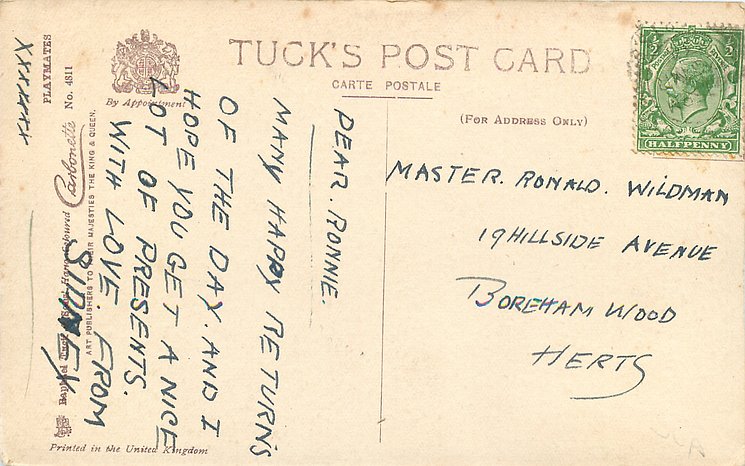 TUCK'S POST CARD
CARTE POSTALE
By Appointment
(FOR ADDRESS ONLY)
½ ½
HALFPENNY
PLAYMATES
No. 4811
Carbonette
ART PUBLISHERS TO THEIR MAJESTIES THE KING & QUEEN.
Raphael Tuck
Printed in the United Kingdom
DEAR. RONNIE.
MANY HAPPY RETURNS
OF THE DAY. AND I
HOPE YOU GET A NICE
LOT OF PRESENTS.
WITH LOVE. FROM
SIDNEY
XXXXXXX
MASTER. RONALD. WILDMAN
19 HILLSIDE AVENUE
BOREHAM WOOD
HERTS